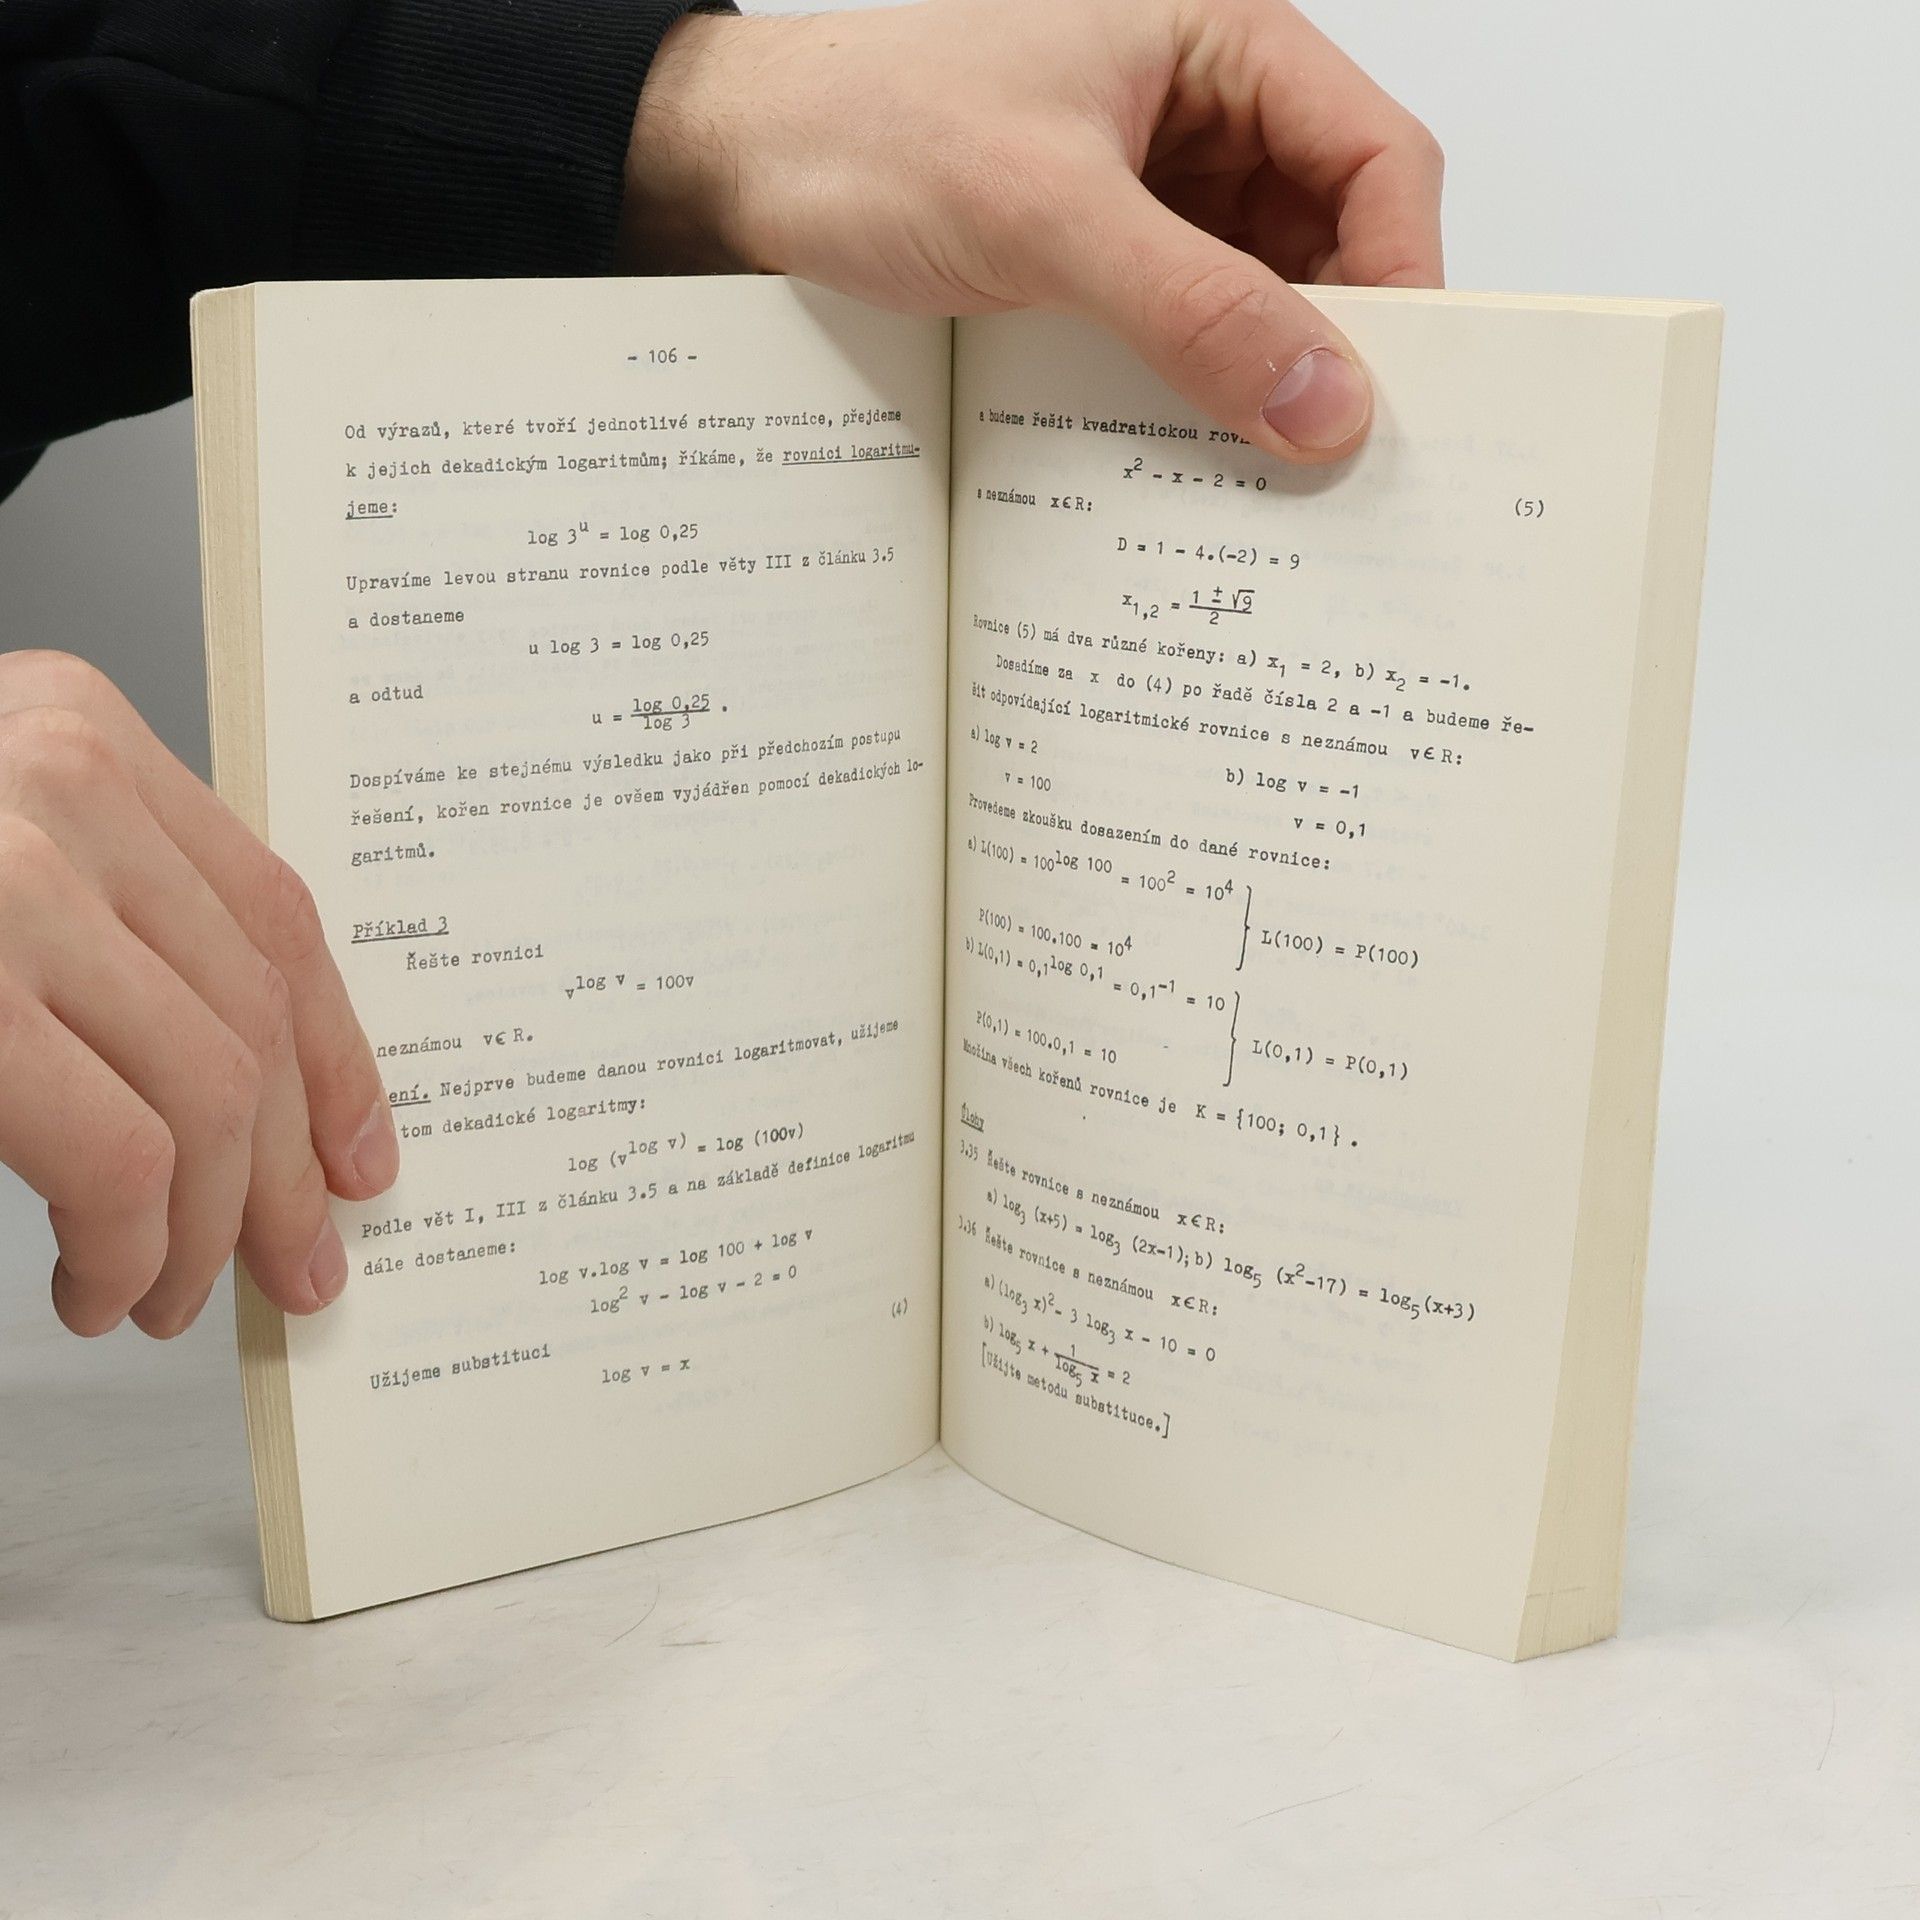 - 106 -
Od výrazů, které tvoří jednotlivé strany rovnice, přejdeme
k jejich dekadickým logaritmům; říkáme, že rovnici logaritmu-
jeme:
log 3^u = log 0,25
Upravíme levou stranu rovnice podle věty III z článku 3.5
a dostaneme
u log 3 = log 0,25
a odtud
u = log 0,25 / log 3 .
Dospíváme ke stejnému výsledku jako při předchozím postupu
řešení, kořen rovnice je ovšem vyjádřen pomocí dekadických lo-
garitmů.
Příklad 3
Řešte rovnici
v^log v = 100v
neznámou v∈R.
ení. Nejprve budeme danou rovnici logaritmovat, užijeme
tom dekadické logaritmy:
log (v^log v) = log (100v)
Podle vět I, III z článku 3.5 a na základě definice logaritmu
dále dostaneme:
log v.log v = log 100 + log v
log² v - log v - 2 = 0 (4)
Užijeme substituci
log v = x
a budeme řešit kvadratickou
x² - x - 2 = 0 (5)
s neznámou x∈R:
D = 1 - 4.(-2) = 9
x₁,₂ = 1 ± √9 / 2
Rovnice (5) má dva různé kořeny: a) x₁ = 2, b) x₂ = -1.
Dosadíme za x do (4) po řadě čísla 2 a -1 a budeme ře-
šit odpovídající logaritmické rovnice s neznámou v∈R:
a) log v = 2 b) log v = -1
v = 100 v = 0,1
Provedeme zkoušku dosazením do dané rovnice:
a) L(100) = 100^log 100 = 100² = 10⁴
P(100) = 100.100 = 10⁴ } L(100) = P(100)
b) L(0,1) = 0,1^log 0,1 = 0,1⁻¹ = 10
P(0,1) = 100.0,1 = 10 } L(0,1) = P(0,1)
Množina všech kořenů rovnice je K = {100; 0,1} .
Úlohy
3.35 Řešte rovnice s neznámou x∈R:
a) log₃ (x+5) = log₃ (2x-1); b) log₅ (x²-17) = log₅(x+3)
3.36 Řešte rovnice s neznámou x∈R:
a) (log₃ x)² - 3 log₃ x - 10 = 0
b) log₅ x + 1 / log₅ x = 2
[Užijte metodu substituce.]